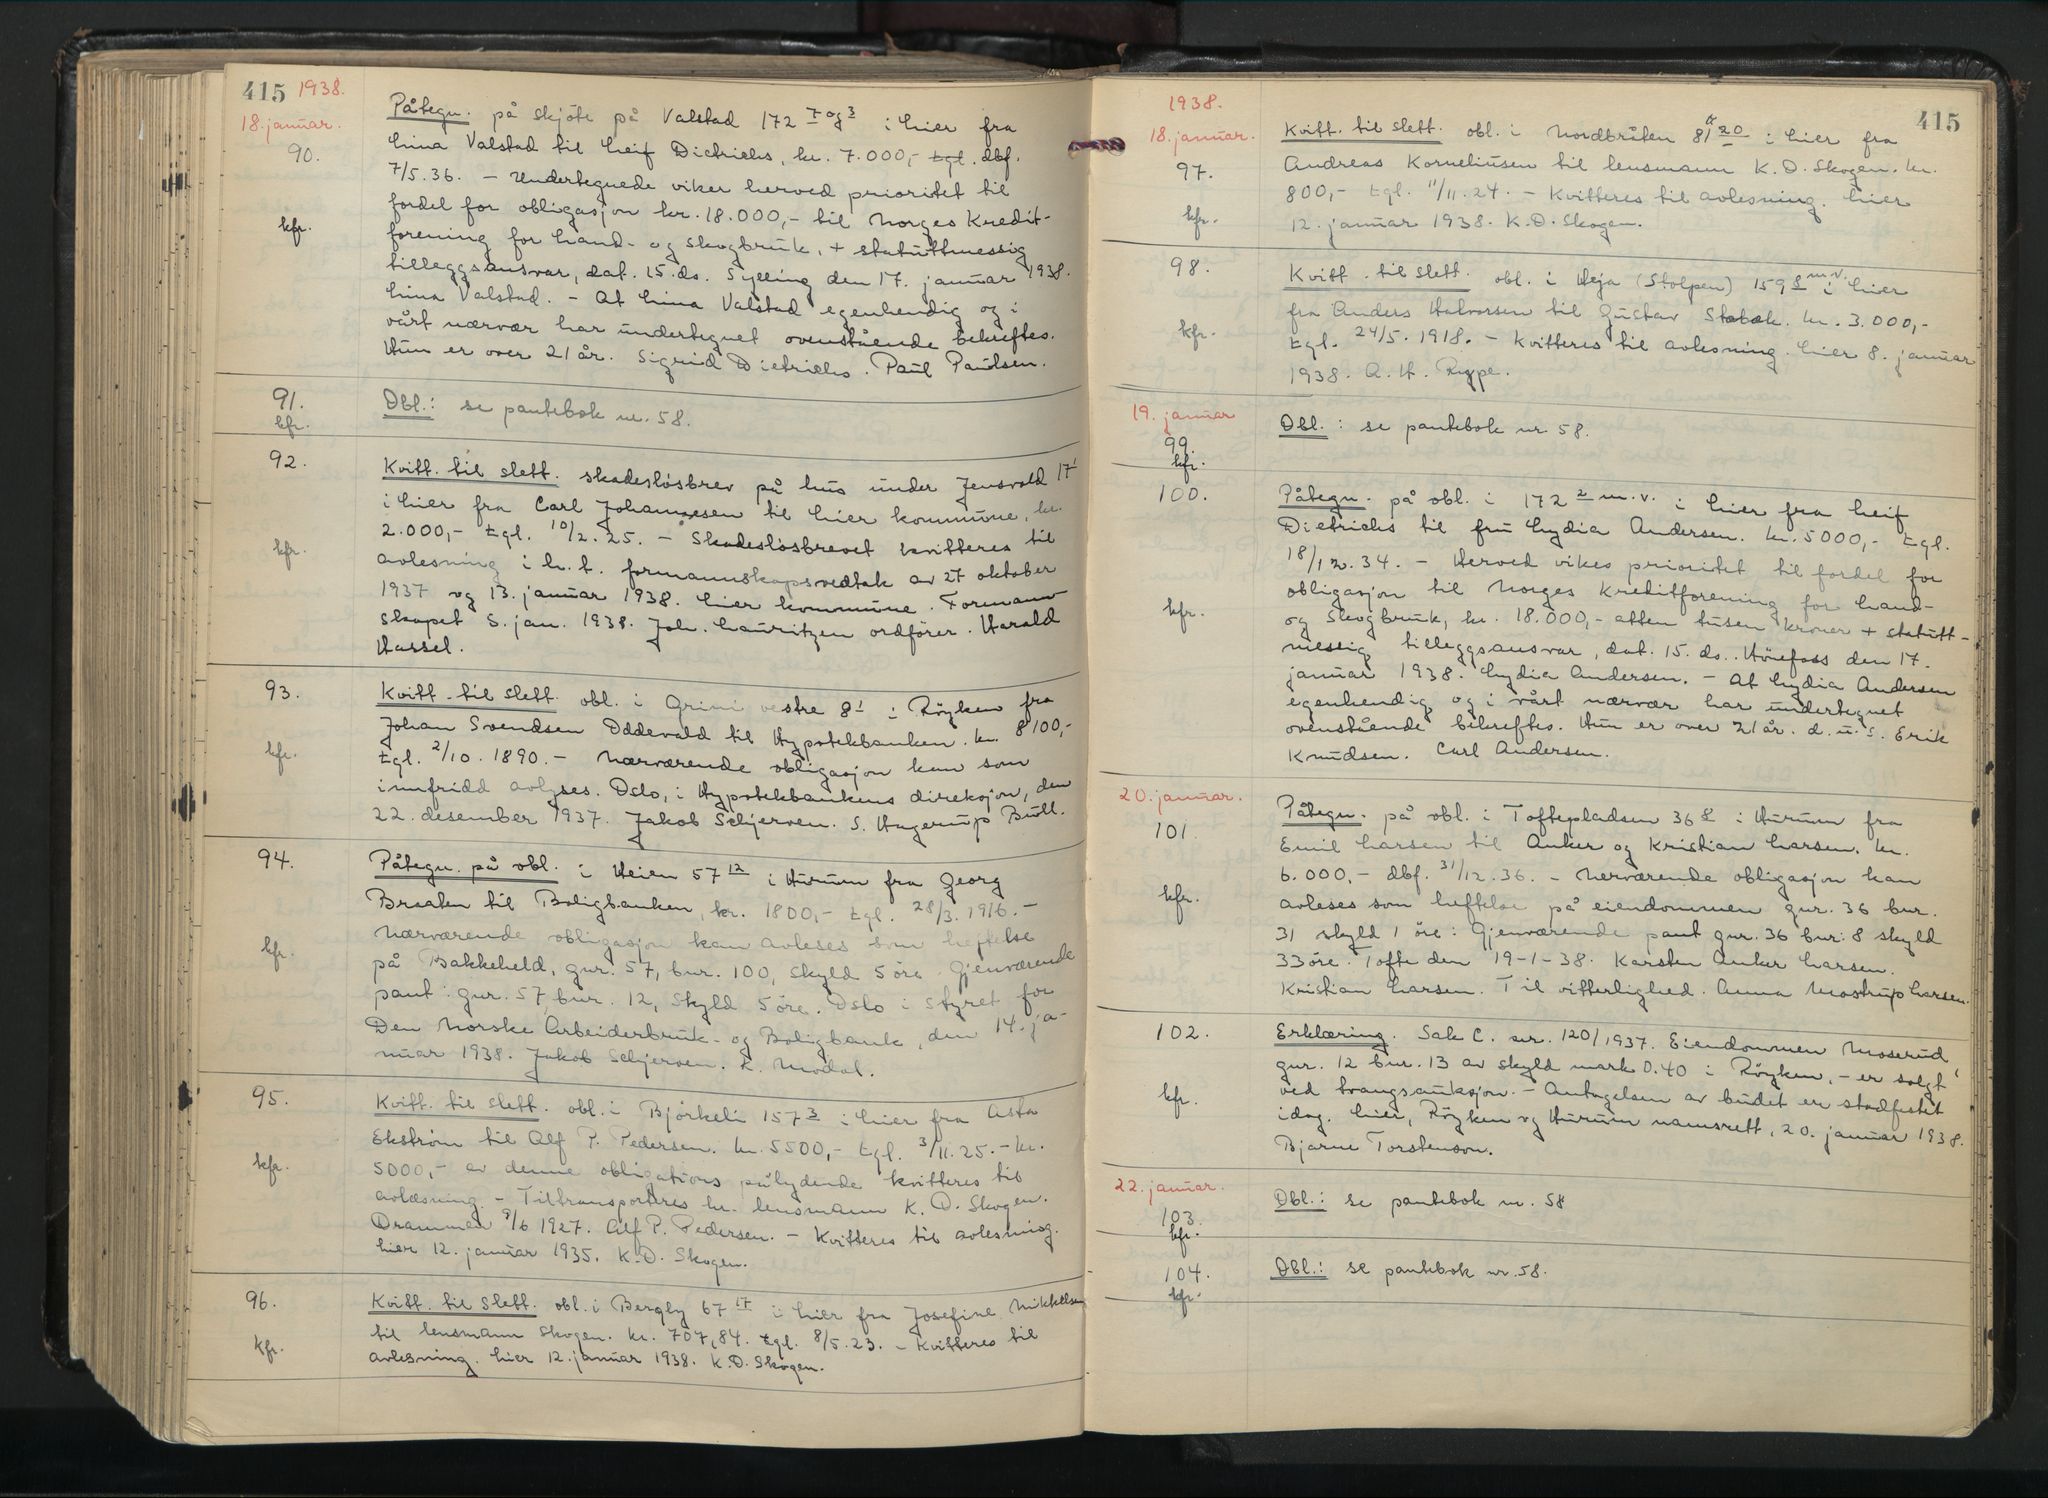 415 1938.
18. januar.
90.
kfr.
Påtegn. på skjöte på Valstad 172 7 og 3 i Lier fra
Lina Valstad til Leif Dietrichs, kr. 7.000,- tgl. dbf.
7/5.36. - Undertegnede viker herved prioritet til
fordel for obligasjon kr. 18.000,- til Norges Kredit-
forening for Land- og Skogbruk, + statuttmessig
tilleggsansvar, dat. 15. ds. Sylling den 17. januar 1938.
Lina Valstad. - At Lina Valstad egenhendig og i
vårt nærvær har undertegnet ovenstående bekreftes.
Hun er over 21 år. Sigrid Dietrichs. Paul Paulsen.
91.
kfr.
Obl.: se pantebok nr. 58.
92.
kfr.
Kvitt. til slett. skadeslösbrev på hus under Jensvold 17 1
i Lier fra Carl Johannesen til Lier kommune, kr.
2.000,- tgl. 10/2.25. - Skadeslösbrevet kvitteres til
avlesning i h. t. formannskapsvedtak av 27 oktober
1937 og 13. januar 1938. Lier kommune. Formann-
skapet 5. jan. 1938. Joh. Lauritzen ordförer. Harald
Hassel.
93.
kfr.
Kvitt. til slett. obl. i Grini vestre 8 1 i Röyken fra
Johan Svendsen Oddevald til Hypotekbanken. kr. 8100,-
tgl. 2/10.1890. - Nærværende obligasjon kan som
innfridd avlyses. Oslo, i Hypotekbankens direksjon, den
22. desember 1937. Jakob Schjerven. S. Hagerup Bull.
94.
kfr.
Påtegn. på obl. i Heien 57 12 i Hurum fra Georg
Braaten til Boligbanken, kr. 1800,- tgl. 28/3.1916. -
Nærværende obligasjon kan avleses som heftelse
på Bakkeheld, gnr. 57, bnr. 100, skyld 5 öre. Gjenværende
pant: gnr. 57, bnr. 12, skyld 5 öre. Oslo i styret for
Den Norske Arbeiderbruk- og Boligbank, den 14. ja-
nuar 1938. Jakob Schjerven. K. Modal.
95.
kfr.
Kvitt. til slett. obl. i Björkeli 157 3 i Lier fra Asta
Ekström til Alf P. Pedersen. kr. 5500,- tgl. 3/11.25. - kr.
5000,- av denne obligations pålydende kvitteres til
avlæsning - Tiltransporteres hr. lensmann K. D. Skogen.
Drammen 9/6 1927. Alf P. Pedersen. - Kvitteres til avlesning.
Lier 12. januar 1935. K.D. Skogen.
96.
kfr.
Kvitt. til slett. obl. i Bergly 67 17 i Lier fra Josefine Mikkelsen
til lensmann Skogen. kr. 707,84. tgl. 8/5.23. - Kvitteres til
avlesning. Lier 12. januar 1938. K.D. Skogen.
415
1938.
18. januar.
97.
kfr.
Kvitt. til slett. obl. i Nordbråten 81 20 i Lier fra
Andreas Korneliusen til lensmann K. D. Skogen. kr.
800,- tgl. 11/11.24. - Kvitteres til avlesning. Lier
12. januar 1938. K.D. Skogen.
98.
kfr.
Kvitt. til slett. obl. i Heja (Stolpen) 159 5 m.v. i Lier
fra Anders Halvorsen til Gustav Stabæk. kr. 3.000,-
tgl. 24/5.1918. - Kvitteres til avlesning. Lier 8. januar
1938. A. H. Rype.
19. januar
99.
kfr.
Obl.: se pantebok nr. 58.
100.
kfr.
Påtegn. på obl. i 172 2 m.v. i Lier fra Leif
Dietrichs til fru Lydia Andersen. kr. 5000,- tgl.
18/12.34. - Herved vikes prioritet til fordel for
obligasjon til Norges Kreditforening for Land-
og Skogbruk, kr. 18.000,- atten tusen kroner + statutt-
messig tilleggsansvar, dat. 15. ds. Hönefoss den 17.
januar 1938. Lydia Andersen. - At Lydia Andersen
egenhendig og i vårt nærvær har undertegnet
ovenstående bekreftes. Hun er over 21 år. d. u. s. Erik
Knudsen. Carl Andersen.
20. januar.
101.
kfr.
Påtegn. på obl. i Toftepladsen 36 8 i Hurum fra
Emil Larsen til Anker og Kristian Larsen. kr.
6.000,- dbf. 31/12.36. - Nærværende obligasjon kan
avleses som heftelse på eiendommen gnr. 36 bnr.
31 skyld 1 öre: Gjenværende pant gnr. 36 bnr: 8 skyld
33 öre. Tofte den 19-1-38. Karsten Anker Larsen.
Kristian Larsen. Til vitterlighed. Anna Mostrup Larsen.
102.
kfr.
Erklæring. Sak C. nr. 120/1937. Eiendommen Moserud
gnr. 12 bnr. 13 av skyld mark 0.40 i Röyken, - er solgt
ved tvangsauksjon. - Antagelsen av budet er stadfestet
idag. Lier, Röyken og Hurum namsrett, 20. januar 1938.
Bjarne Torstenson.
22. januar.
103.
kfr.
Obl.: se pantebok nr. 58
104.
kfr.
Obl.: se pantebok nr. 58.